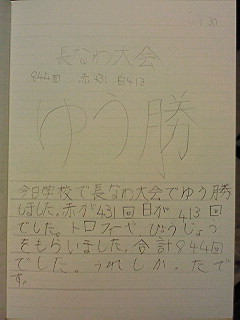 長なわ大会
844回 赤431 白413
ゆう勝
今日学校で長なわ大会でゆう勝
しました。赤が431回白が 413回
でした。トロフィーや、ひょうじょう
をもらいました。合計844回
でした。うれしかったで
す。